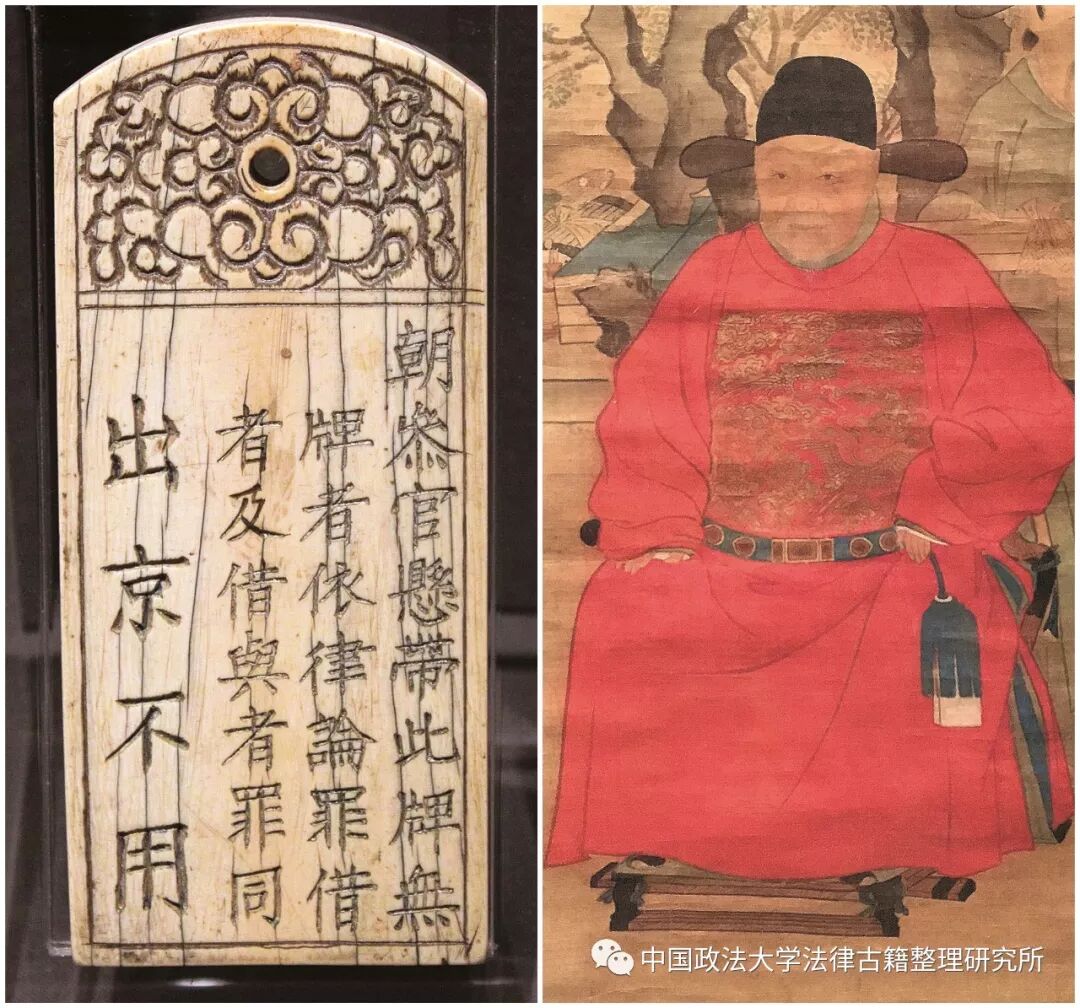 朝叅官懸帶此牌無
牌者依律論罪借
者及借與者罪同
出京不用
中国政法大学法律古籍整理研究所